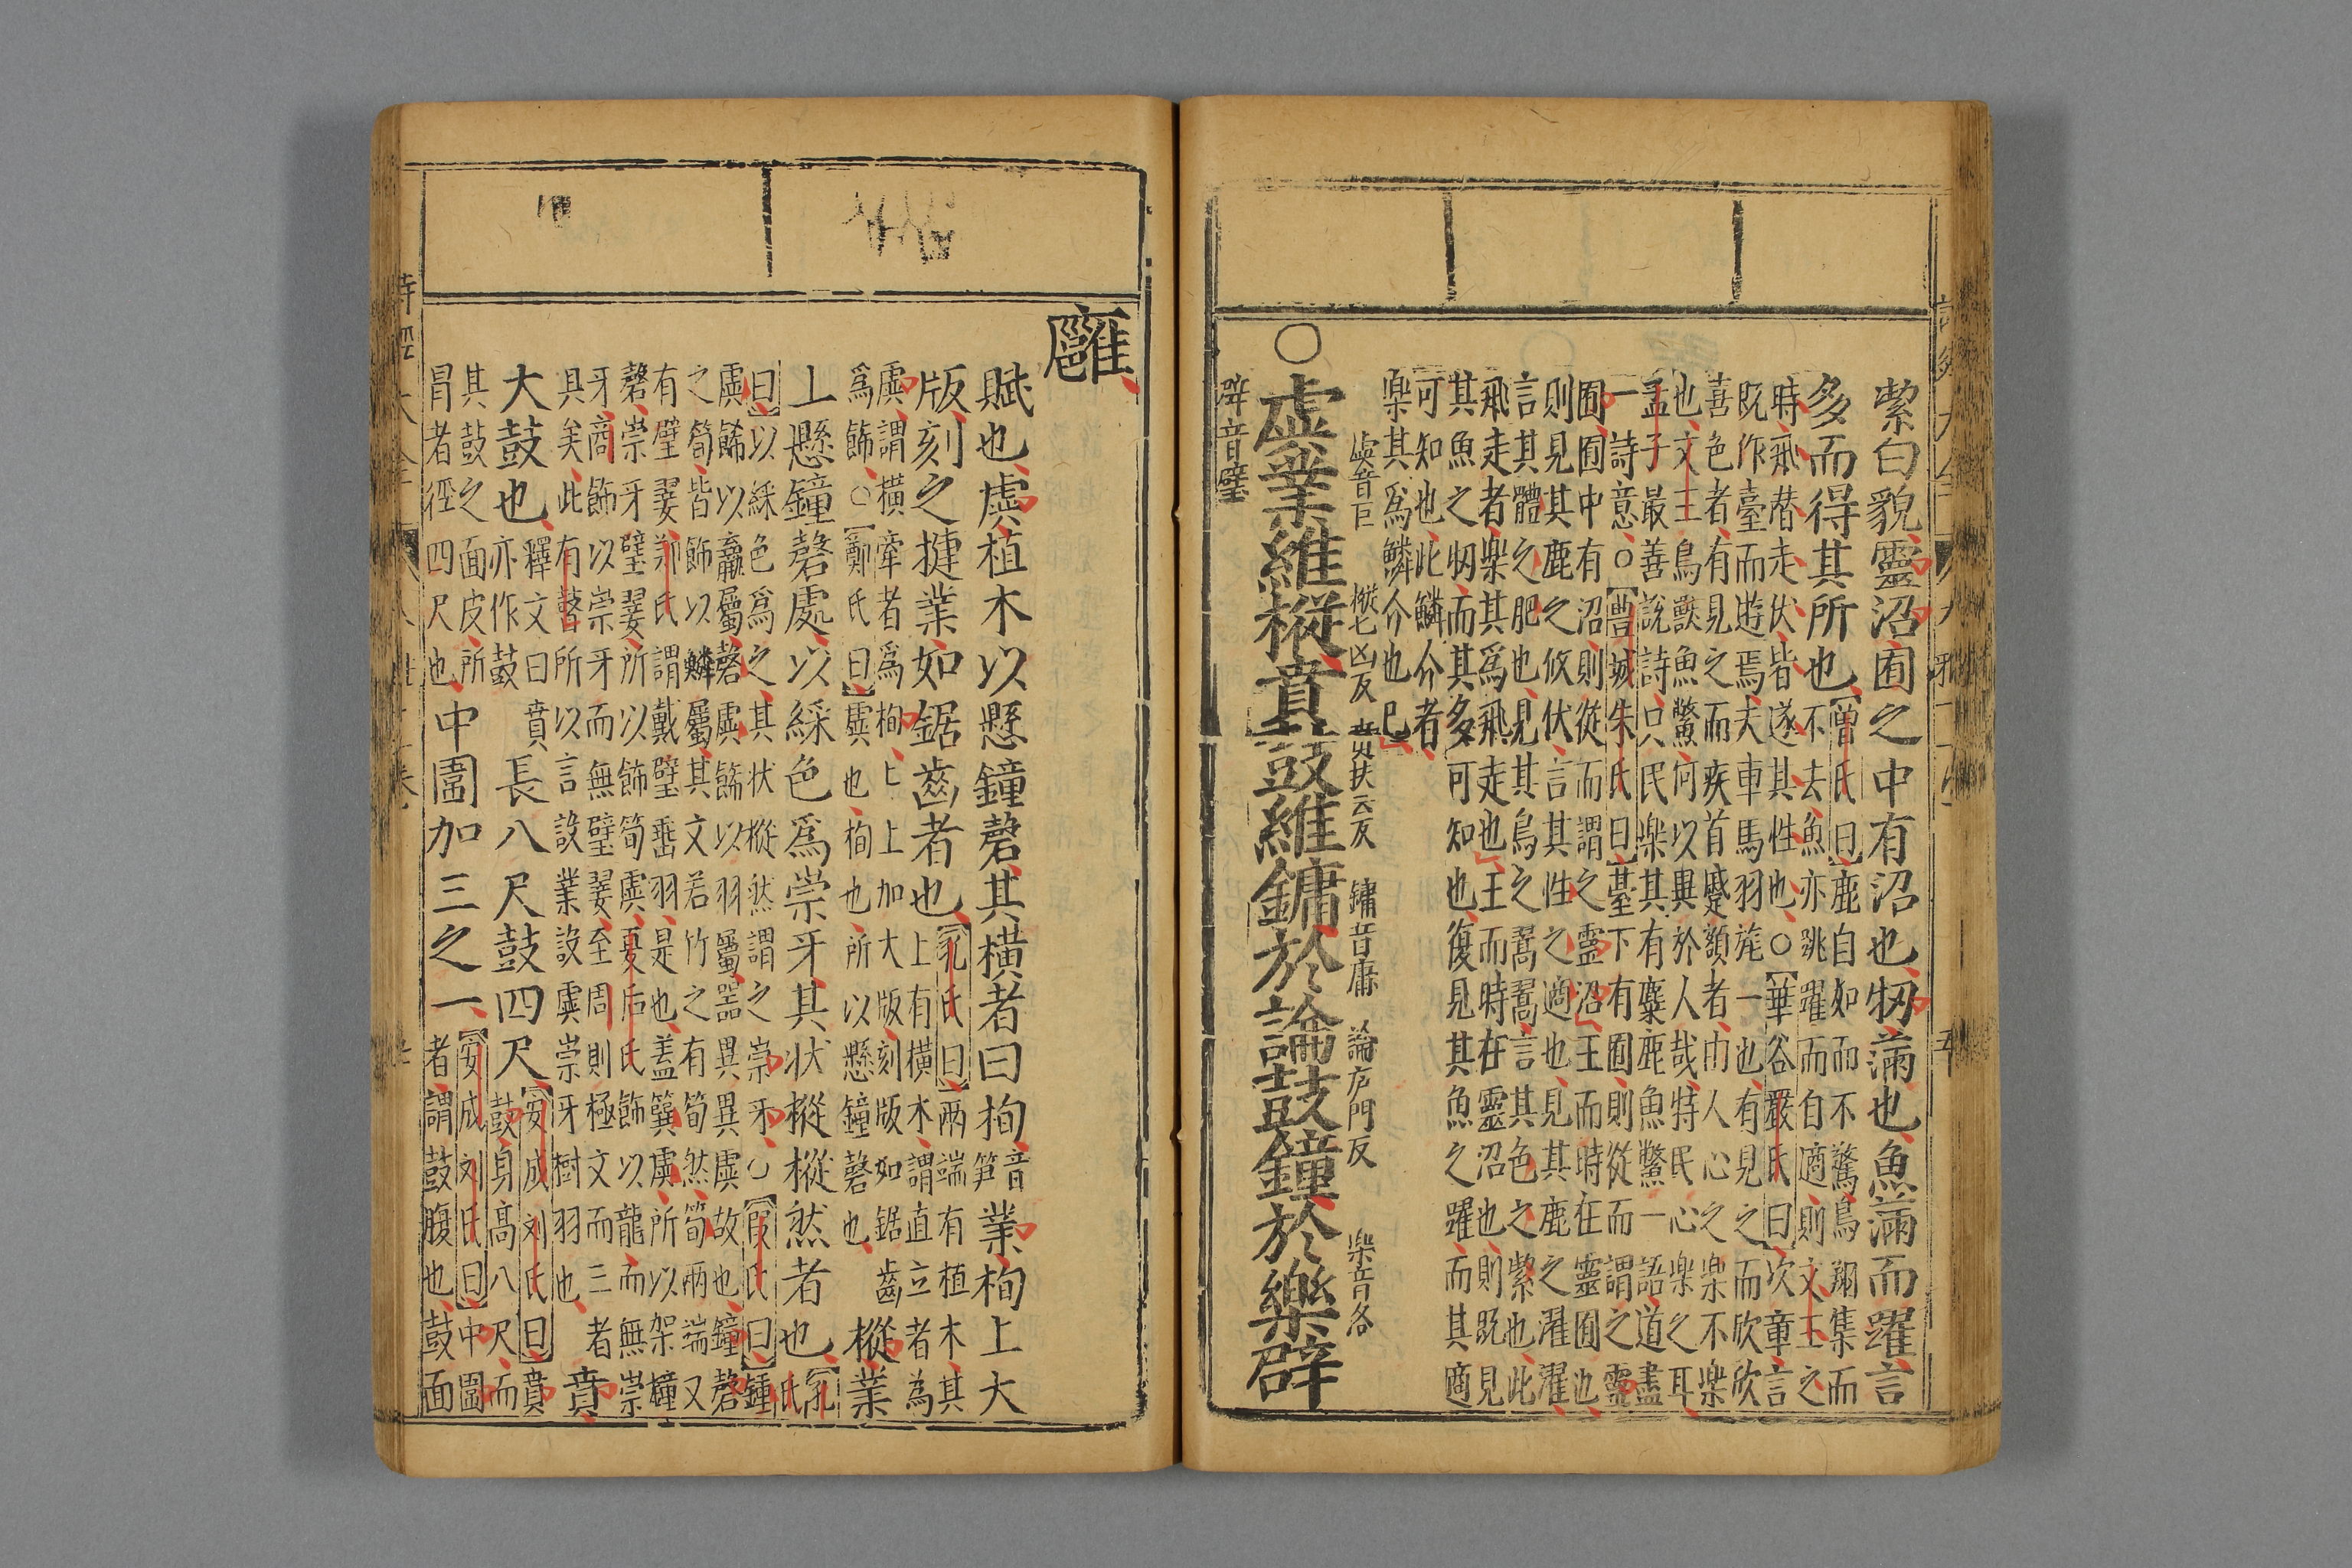 絜白貌靈沼囿之中有沼也牣滿也魚滿而躍言
多而得其所也【曾氏曰】鹿自如而不驚鳥翔集而
不去魚亦跳躍而自適則文王之
時飛潜走伏皆遂其性也○【華谷嚴氏曰】次章言
既作臺而遊焉夫車馬羽旄一也有見之而欣欣
喜色者有見之而疾首蹙頞者由人心之樂不樂
也文王鳥獸魚鱉何以異於人哉特民心樂之耳
孟子最善說詩只民樂其有麋鹿魚鱉一語道盡
一詩意○【豐城朱氏曰】臺下有囿則從而謂之靈
囿囿中有沼則從而謂之靈沼王而時在靈囿也
則見其鹿之攸伏言其性之適也見其鹿之濯濯
言其體之肥也見其鳥之翯翯言其色之絜也此
飛走者樂其爲飛走也王而時在靈沼也則既見
其魚之牣而其多可知也復見其魚之躍而其適
可知也此鱗介者
樂其爲鱗介也已
虡音巨 樅七凶反 賁扶云反 鏞音庸 論庐門反 樂音各
○虡業維樅賁鼓維鏞於論鼓鐘於樂辟
辟音璧
廱
賦也虡植木以懸鐘磬其横者曰栒音笋業栒上大
版刻之捷業如鋸齒者也【孔氏曰】兩端有植木其
上有横木謂直立者為
虡謂横牽者爲栒ヒ上加大版刻版如鋸齒
爲飾○【鄭氏曰】虡也栒也所以懸鐘磬也 樅業
上懸鐘磬處以綵色爲崇牙其状樅樅然者也【孔氏
曰】以綵色爲之其状樅然謂之崇牙○【叚氏曰】鍾
虡飾以臝屬磬虡飾以羽屬器異異虡故也鐘磬
之筍皆飾以鱗屬其文若竹之有筍然筍兩端又
有璧翣鄭氏謂戴璧垂羽是也蓋簨虡所以架鐘
磬崇牙璧翣所以飾筍虡夏后氏飾以龍而無崇
牙商飾以崇牙而無璧翣至周則極文而三者
具矣此有瞽所以言設業設虡崇牙樹羽也 賁
大鼓也釋文曰賁
亦作鼖
長八尺鼓四尺【安成刘氏曰】賁
鼓身高八尺而
其鼓之面皮所
冐者徑四尺也
中圍加三之一【安成刘氏曰】中圍
者謂鼓腹也鼓面